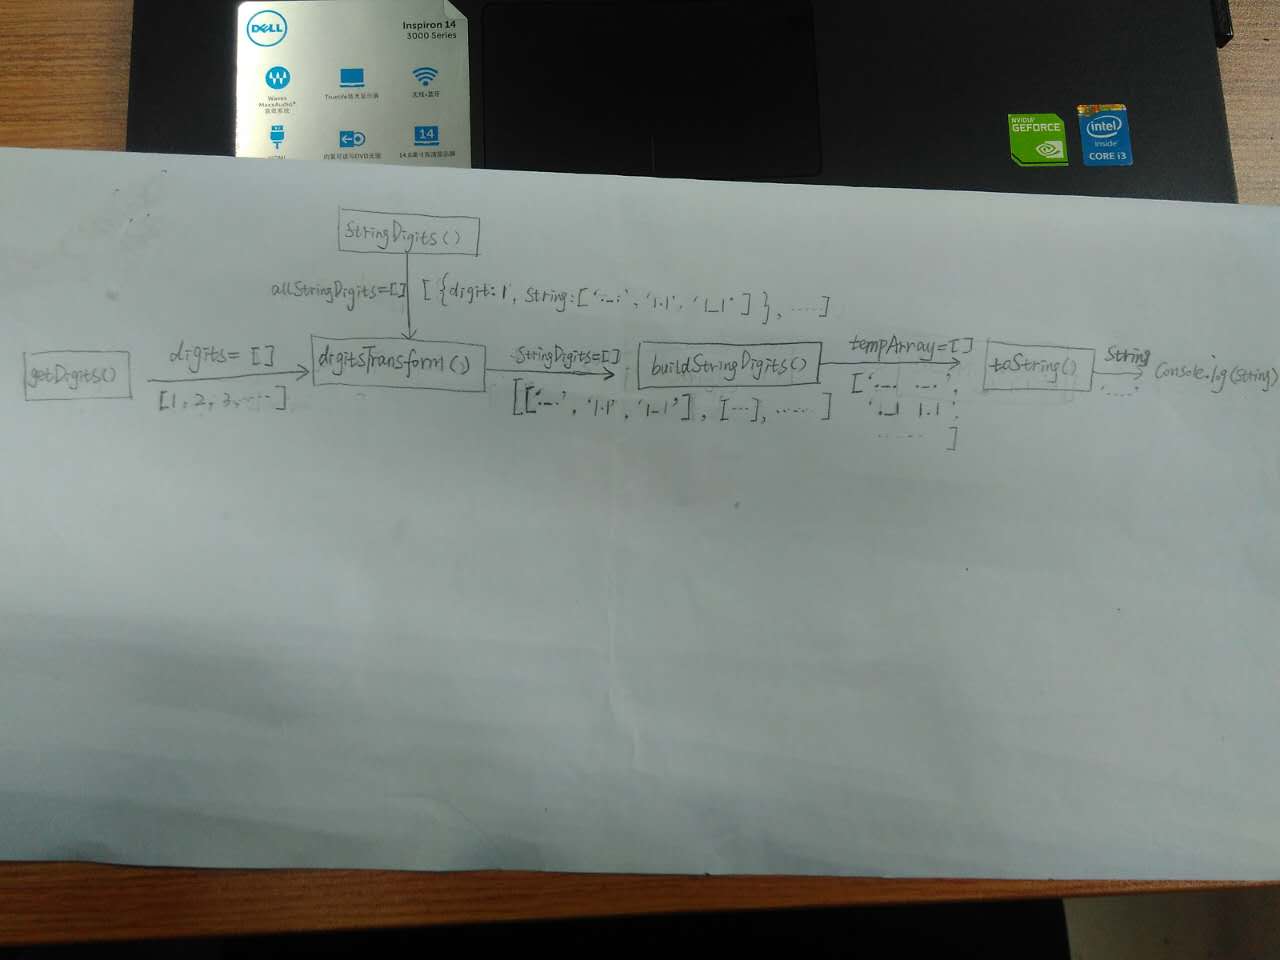 DELL
Inspiron 14
3000 Series
Waves
MaxxAudio®
音效系统
Truelife炫光显示屏
无线+蓝牙
HDMI
内置可读写DVD光驱
14
14.0英寸高清显示屏
NVIDIA
GEFORCE
intel
inside
CORE i3
StringDigits()
allStringDigits=[]
[{digit:1, String:['._.','|.|','|_|']},.....]
getDigits()
digits=[]
[1,2,3,....]
digitsTransform()
StringDigits=[]
[['._.','|.|','|_|'],[...],.....]
buildStringDigits()
tempArray=[]
toString()
String
'....'
Console.log(String)